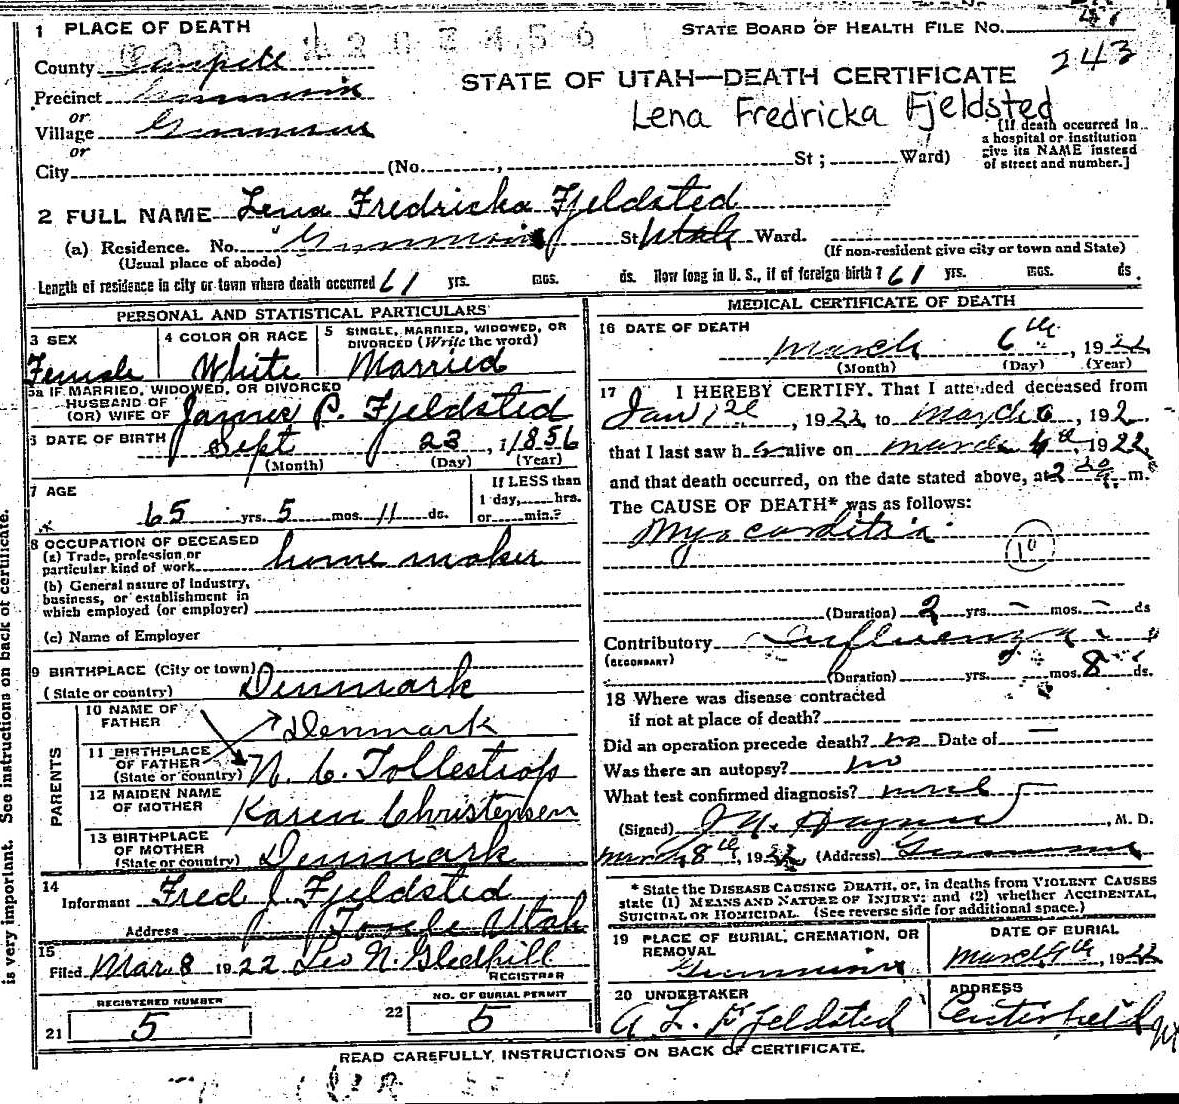 1 PLACE OF DEATH
STATE BOARD OF HEALTH FILE NO.
243
County Sanpete
STATE OF UTAH—DEATH CERTIFICATE
Precinct Gunnison
or
Lena Fredricka Fjeldsted
Village Gunnison
or
[If death occurred in
a hospital or institution
give its NAME instead
of street and number.]
City (No. , St ; Ward)
2 FULL NAME Lena Fredricka Fjeldsted
(a) Residence. No. Gunnison St Utah Ward.
(Usual place of abode) (If non-resident give city or town and State)
Length of residence in city or town where death occurred 61 yrs. mos. ds. How long in U. S., if of foreign birth? 61 yrs. mos. ds.
PERSONAL AND STATISTICAL PARTICULARS
3 SEX
Female
4 COLOR OR RACE
White
5 SINGLE, MARRIED, WIDOWED, OR
DIVORCED (Write the word)
Married
5a IF MARRIED, WIDOWED, OR DIVORCED
HUSBAND OF
(OR) WIFE OF James P. Fjeldsted
6 DATE OF BIRTH Sept 23, 1856
(Month) (Day) (Year)
7 AGE
65 yrs. 5 mos. 11 ds.
If LESS than
1 day, hrs.
or min.?
8 OCCUPATION OF DECEASED
(a) Trade, profession or
particular kind of work home maker
(b) General nature of Industry,
business, or establishment in
which employed (or employer)
(c) Name of Employer
9 BIRTHPLACE (City or town)
(State or country) Denmark
PARENTS
10 NAME OF
FATHER Denmark
11 BIRTHPLACE
OF FATHER
(State or country) N. C. Tollestrup
12 MAIDEN NAME
OF MOTHER Karen Christensen
13 BIRTHPLACE
OF MOTHER
(State or country) Denmark
14
Informant Fred J. Fjeldsted
Address Tooele Utah
15
Filed Mar. 8 1922 Leo N. Gledhill
REGISTRAR
REGISTERED NUMBER
21 5
NO. OF BURIAL PERMIT
22 5
MEDICAL CERTIFICATE OF DEATH
16 DATE OF DEATH
March 6th, 1922
(Month) (Day) (Year)
17 I HEREBY CERTIFY, That I attended deceased from
Jan 1922 to March 6, 192
that I last saw her alive on March 4th 1922
and that death occurred, on the date stated above, at 2 m.
The CAUSE OF DEATH* was as follows:
Myocarditis
(Duration) 2 yrs. – mos. – ds
Contributory Influenza
(SECONDARY)
(Duration) yrs. mos. 8 ds.
18 Where was disease contracted
if not at place of death?
Did an operation precede death? no Date of —
Was there an autopsy? no
What test confirmed diagnosis?
(Signed) , M. D.
March 8th, 1922 (Address) Gunnison
* State the DISEASE CAUSING DEATH, or, in deaths from VIOLENT CAUSES
state (1) MEANS AND NATURE OF INJURY; and (2) whether ACCIDENTAL,
SUICIDAL OR HOMICIDAL. (See reverse side for additional space.)
19 PLACE OF BURIAL, CREMATION, OR
REMOVAL
Gunnison
DATE OF BURIAL
March 9th, 1922
20 UNDERTAKER
A L Fjeldsted
ADDRESS
Centerfield Ut
READ CAREFULLY, INSTRUCTIONS ON BACK OF CERTIFICATE.
is very important. See instructions on back of certificate.